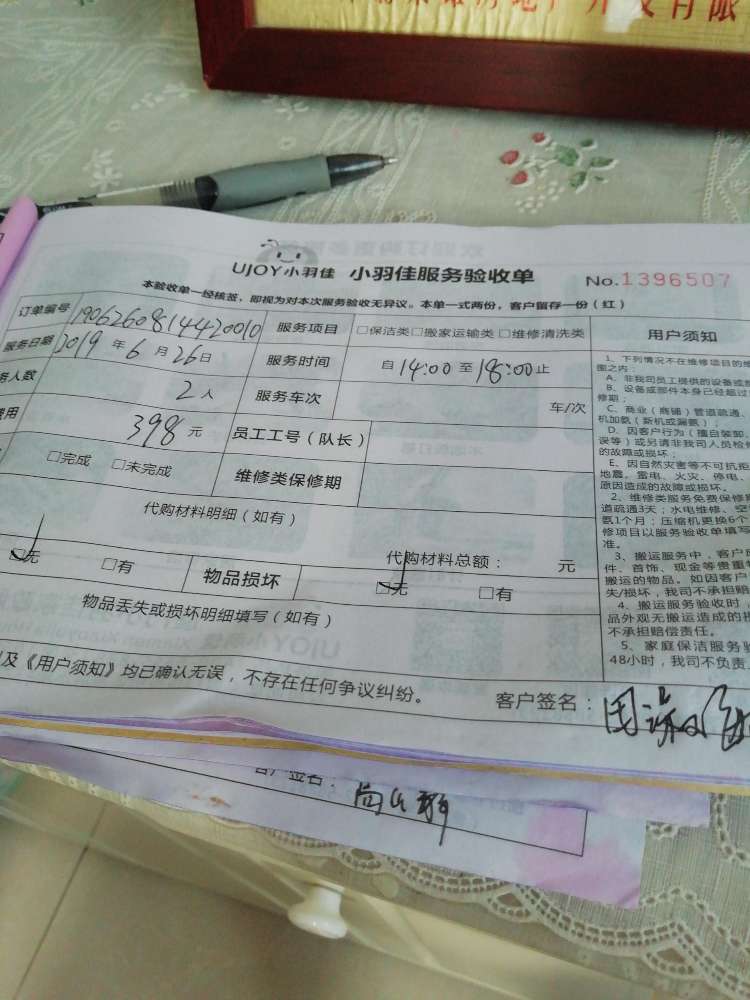 有限
UJOY小羽佳 小羽佳服务验收单 No.1396507
本验收单一经核签，即视为对本次服务验收无异议。本单一式两份，客户留存一份（红）
订单编号 1906260814420010 服务项目 □保洁类□搬家运输类□维修清洗类 用户须知
服务日期 2019年6月26日 服务时间 自14:00至18:00止
务人数 2人 服务车次 车/次
费用 398元 员工工号（队长）
□完成 □未完成 维修类保修期
代购材料明细（如有）
代购材料总额： 元
□无 □有 物品损坏 □无 □有
物品丢失或损坏明细填写（如有）
及《用户须知》均已确认无误，不存在任何争议纠纷。
客户签名：
1、下列情况不在维修项目的维
围之内：
A、非我司员工提供的设备或
B、设备或部件本身已经超过
修期；
C、商业（商铺）管道疏通、
机加氨（新机或漏氨）；
D、因客户行为（擅自装卸、
误等）或另请非我司人员检修
的故障或损坏；
E、因自然灾害等不可抗拒
地震、雷电、火灾、停电、
原因造成的故障或损坏。
2、维修类服务免费保修期
道疏通3天；水电维修、空
氨1个月；压缩机更换6个
修项目以服务验收单填写
准。
3、搬运服务中，客户
件、首饰、现金等贵重
搬运的物品。如因客户
失/损坏，我司不承担赔
4、搬运服务验收时，
品外观无搬运造成的损
不承担赔偿责任。
5、家庭保洁服务验
48小时，我司不负责
客户签名：